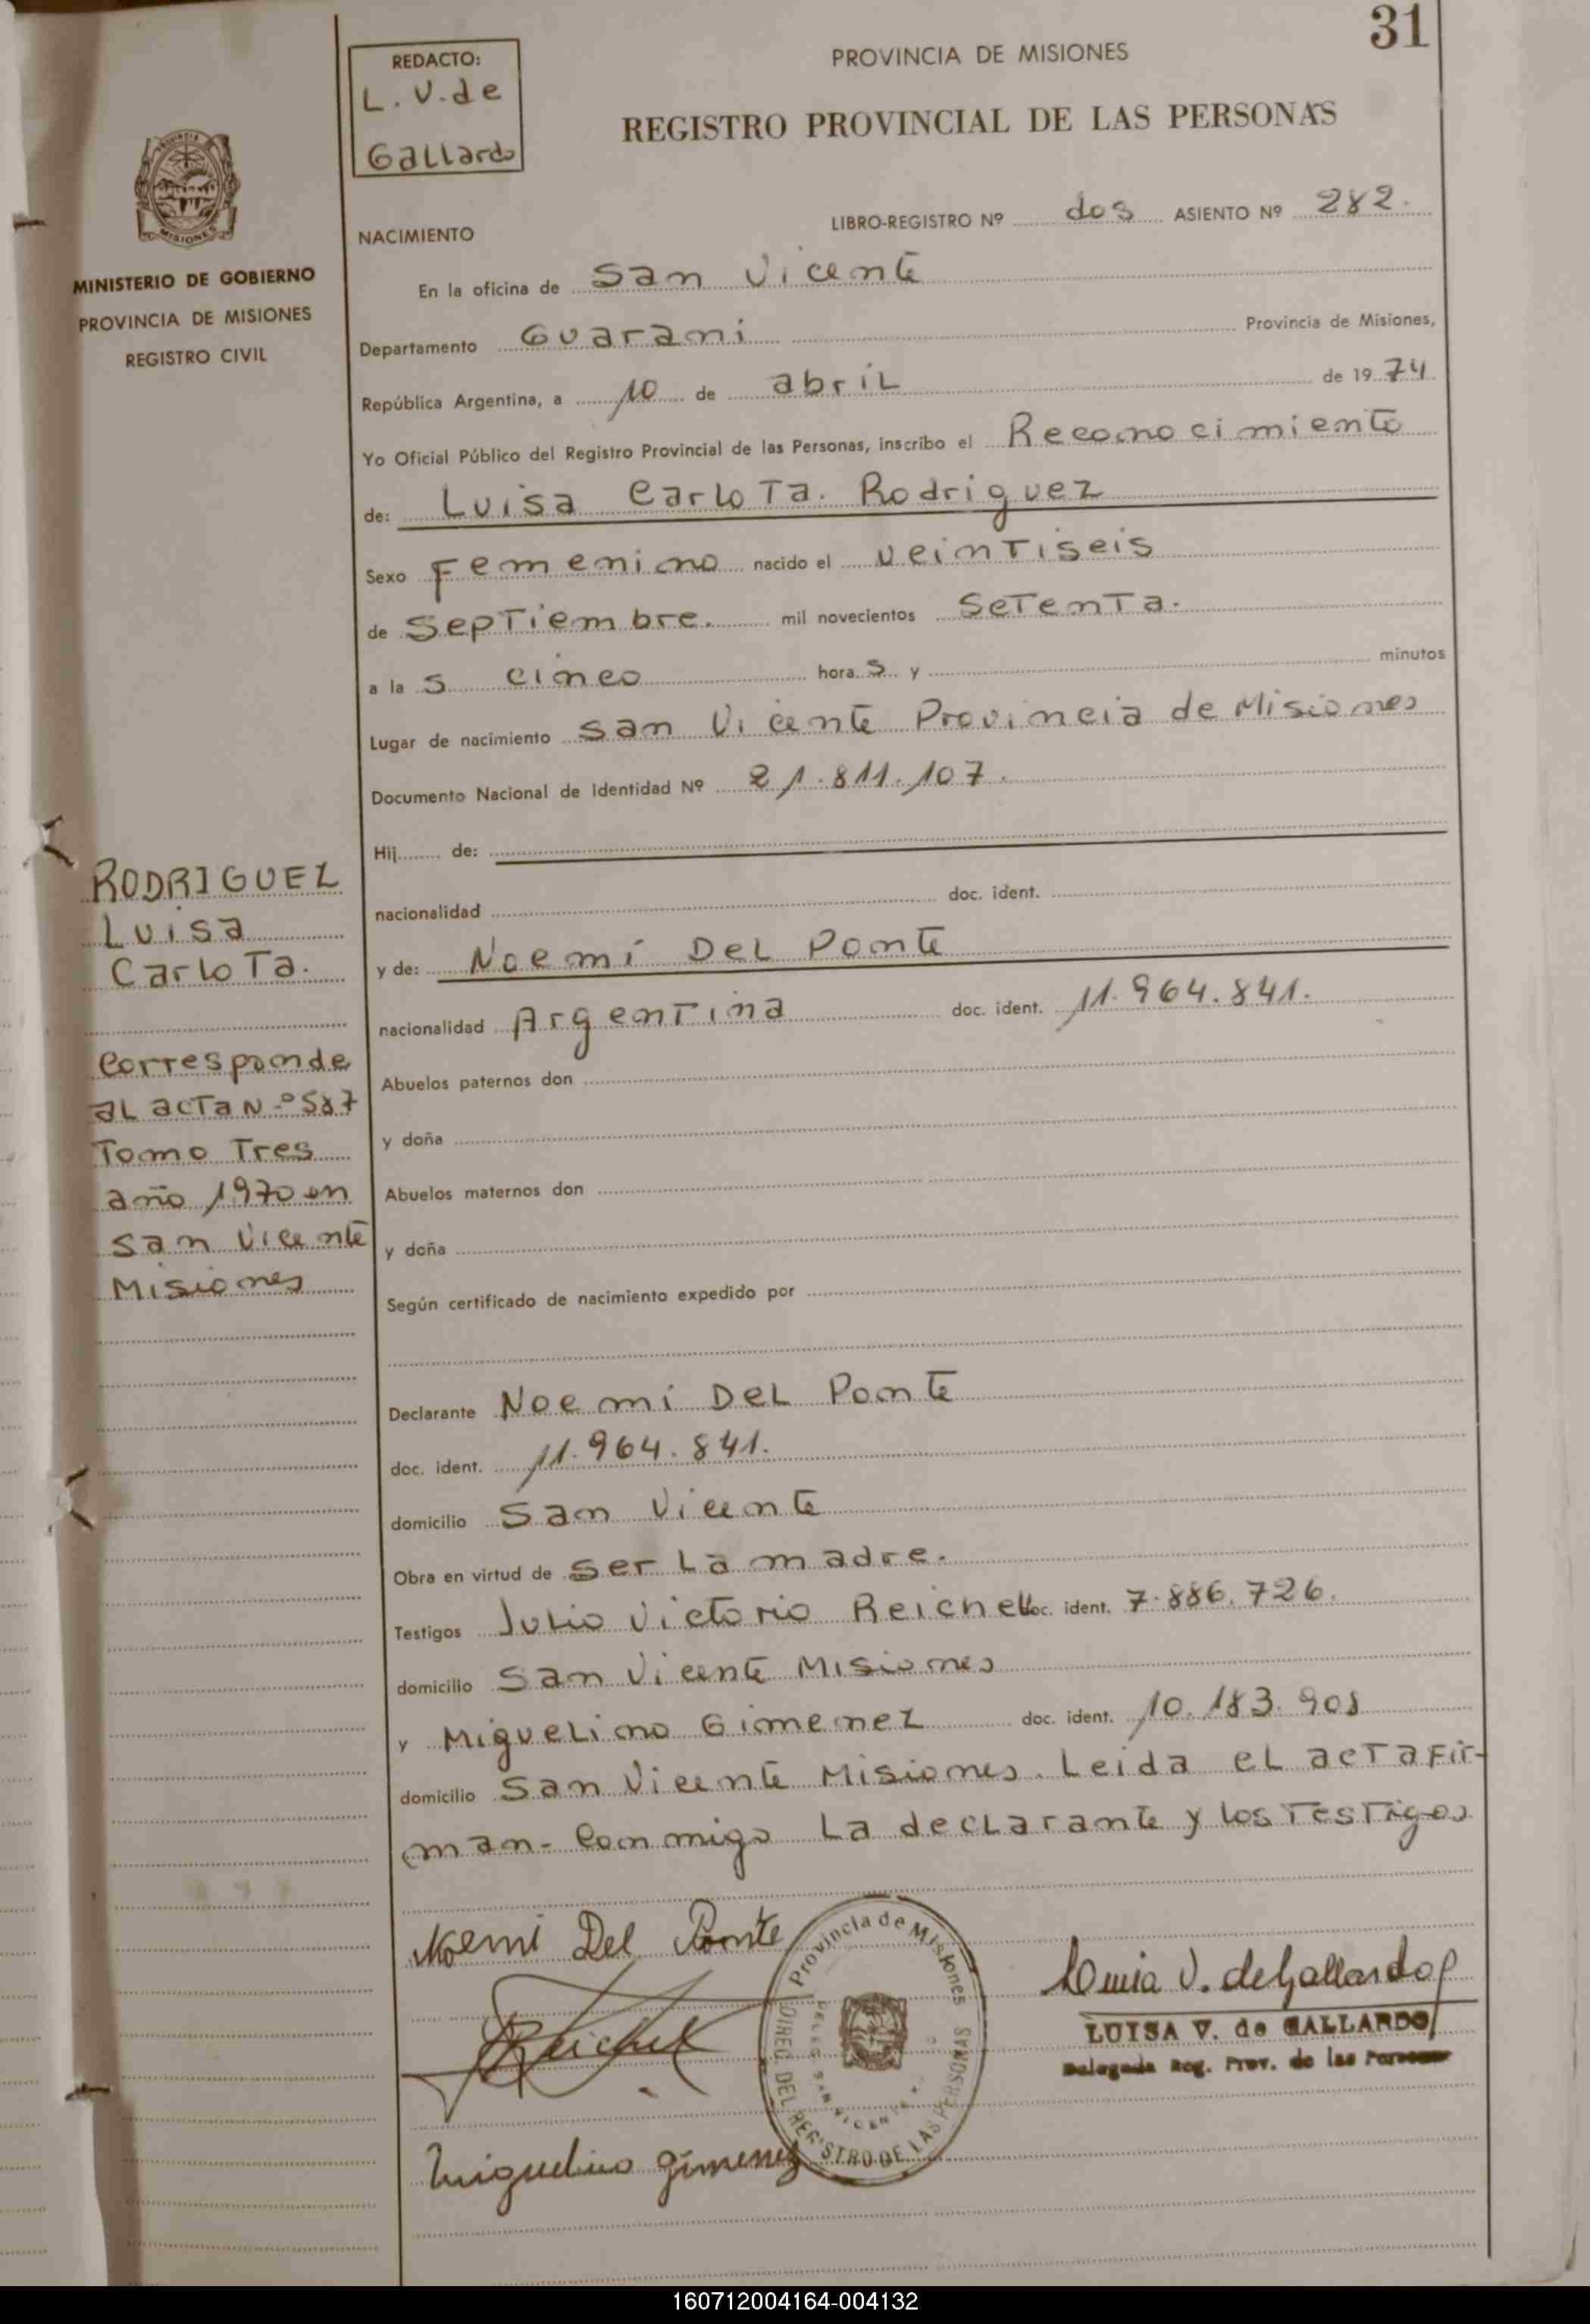 31
REDACTO:
L. V. de
Gallardo
PROVINCIA DE MISIONES
REGISTRO PROVINCIAL DE LAS PERSONAS
PROVINCIA
MISIONES
MINISTERIO DE GOBIERNO
PROVINCIA DE MISIONES
REGISTRO CIVIL
LIBRO-REGISTRO Nº dos ASIENTO Nº 282.
NACIMIENTO
En la oficina de San Vicente
Departamento Guarani Provincia de Misiones,
República Argentina, a 10 de abril de 1974
Yo Oficial Público del Registro Provincial de las Personas, inscribo el Reconocimiento
de: Luisa Carlota. Rodriguez
Sexo Femenino nacido el veintiseis
de Septiembre. mil novecientos Setenta.
a la s cinco hora s y minutos
Lugar de nacimiento San Vicente Provincia de Misiones
Documento Nacional de Identidad Nº 21.811.107.
Hij de:
nacionalidad doc. ident.
y de: Noemi Del Ponte
nacionalidad Argentina doc. ident. 11.964.841.
Abuelos paternos don
y doña
Abuelos maternos don
y doña
Según certificado de nacimiento expedido por
Declarante Noemi Del Ponte
doc. ident. 11.964.841.
domicilio San Vicente
Obra en virtud de ser la madre.
Testigos Julio Victorio Reichel doc. ident. 7.886.726.
domicilio San Vicente Misiones
y Miguelino Gimenez doc. ident. 10.183.908
domicilio San Vicente Misiones. Leida el acta fir-
man- conmigo la declarante y los Testigos
RODRIGUEZ
Luisa
Carlota.
Corresponde
al acta N-º 587
Tomo Tres
año 1970 en
San Vicente
Misiones
Noemi Del Ponte
Reichel
Miguelino Gimenez
Provincia de Misiones
DIREC. DEL REGISTRO DE LAS PERSONAS
DELEG. SAN VICENTE
Luisa V. de Gallardo
LUISA V. de GALLARDO
Delegada Reg. Prov. de las Personas
160712004164-004132